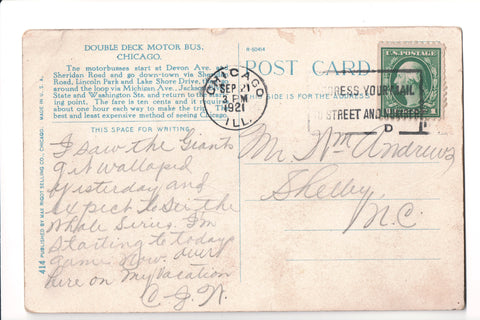 DOUBLE DECK MOTOR BUS,
CHICAGO.
The motorbusses start at Devon Ave.
Sheridan Road and go down-town via
Road, Lincoln Park and Lake Shore Drive,
around the loop via Michigan Ave., Jackson
State and Washington Sts. and return to the
ing point. The fare is ten cents and it requires
about one hour each way to make the trip. The
best and least expensive method of seeing Chicago.
THIS SPACE FOR WRITING.
I saw the Giants
get walloped
yesterday and
expect to see the
whole Siries. I'm
starting to today
game now. over
here on my vacation
C. J. N.
R-50414
POST CARD
THIS SIDE IS FOR THE ADDRESS.
CHICAGO
SEP 21
PM
1921
ILL.
ADDRESS YOUR MAIL
TO STREET AND NUMBER
U.S. POSTAGE
Mr. Wm Andrews
Shelby
N.C.
414 PUBLISHED BY MAX RIGOT SELLING CO., CHICAGO.
MADE IN U. S. A.